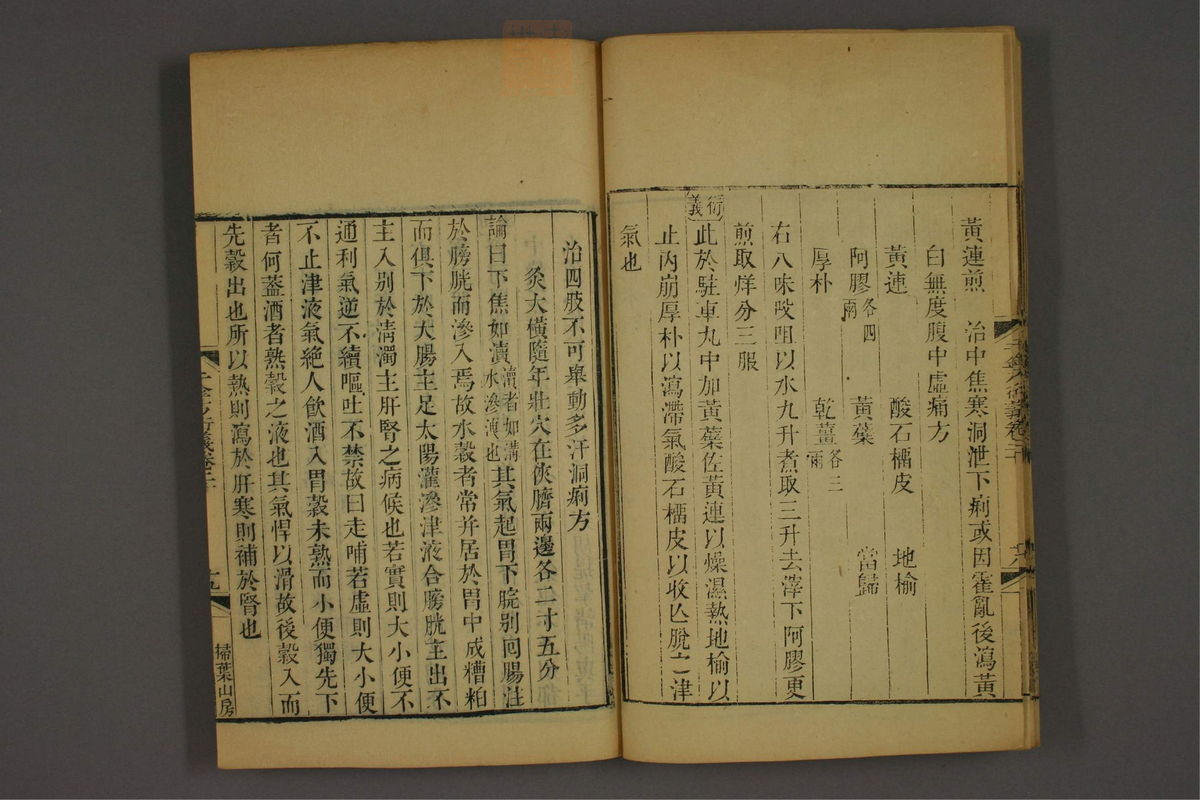 黃連煎　治中焦寒洞泄下痢或因霍亂後瀉黃
白無度腹中虛痛方
黃連　酸石橊皮　地榆
阿膠各四兩　黃蘗　當歸
厚朴　乾薑各三兩
右八味㕮咀以水九升煮取三升去滓下阿膠更
煎取烊分三服
衍義
此於駐車丸中加黃蘗佐黃連以燥濕熱地榆以
止內崩厚朴以瀉滯氣酸石橊皮以收亾脫之津
氣也
治四肢不可舉動多汗洞痢方
灸大橫隨年壯穴在俠臍兩邊各二寸五分
論曰下焦如瀆瀆者如溝水滲洩也其氣起胃下脘別回腸注
於膀胱而滲入焉故水穀者常并居於胃中成糟粕
而俱下於大腸主足太陽灌滲津液合膀胱主出不
主入別於淸濁主肝腎之病候也若實則大小便不
通利氣逆不續嘔吐不禁故曰走哺若虛則大小便
不止津液氣絕人飮酒入胃穀未熟而小便獨先下
者何葢酒者熟穀之液也其氣悍以滑故後穀入而
先穀出也所以熱則瀉於肝寒則補於腎也
千金方衍義卷二十
十九
掃葉山房